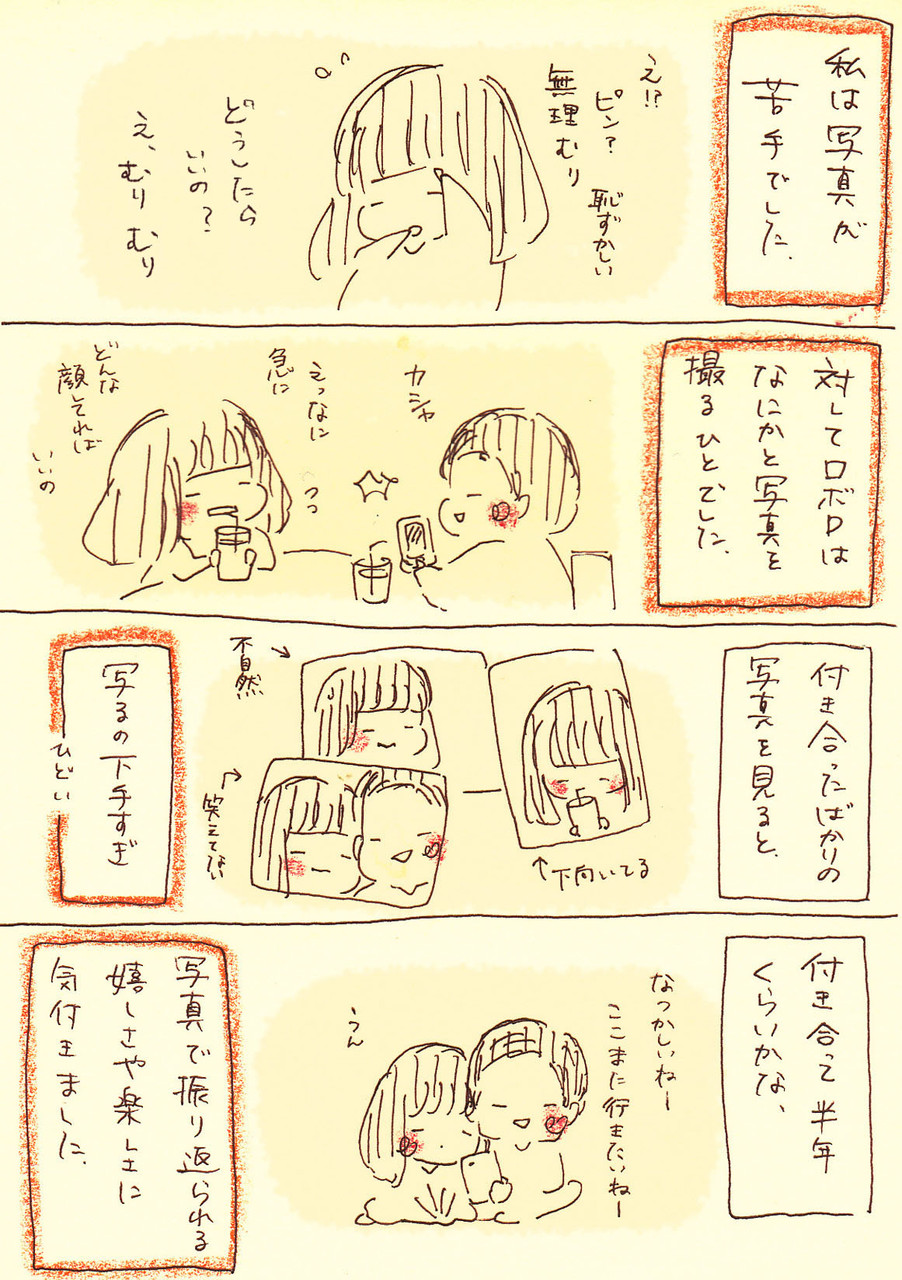 私は写真が
苦手でした.
え!?
ピン?
無理むり
恥ずかしい
どうしたら
いいの?
え、むりむり
対してロボPは
なにかと写真を
撮るひとでした.
カシャ
えっなに
急に
どんな
顔してれば
いいの
付き合ったばかりの
写真を見ると、
不自然
笑えてない
下向いてる
写るの下手すぎ
ひどい
付き合って半年
くらいかな、
なつかしいねー
ここまた行きたいねー
うん
写真で振り返られる
嬉しさや楽しさに
気付きました.